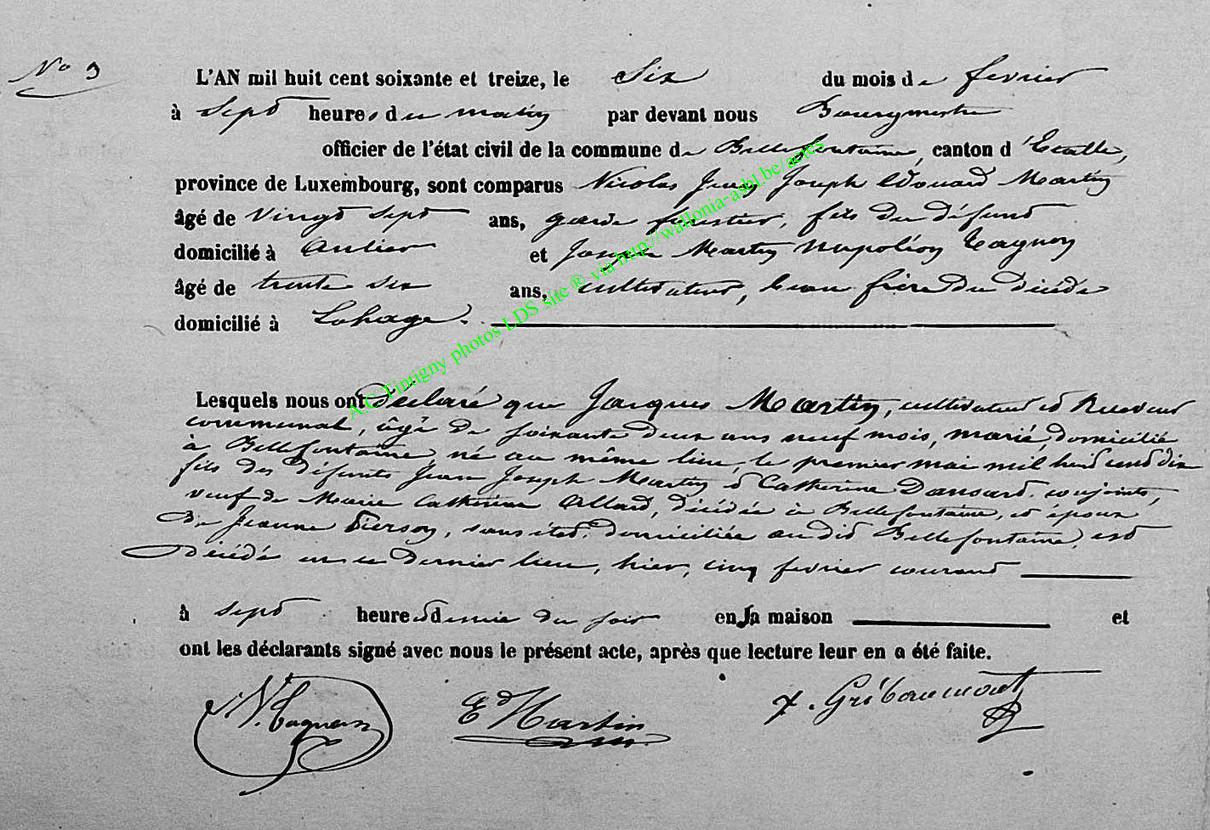 N° 9
L'AN mil huit cent soixante et treize, le six du mois de fevrier
à sept heures du matin par devant nous Bourgmestre
officier de l'état civil de la commune de Bellefontaine, canton d'Etalle,
province de Luxembourg, sont comparus Nicolas Jean Joseph Edouard Martin
âgé de vingt sept ans, garde forestier, fils du défunt
domicilié à Anlier et Joseph Martin Napoléon Tagnon
âgé de trente six ans, cultivateur, beau frère du décédé
domicilié à Lahage.
Lesquels nous ont déclaré que Jacques Martin, cultivateur et Receveur
communal, âgé de soixante deux ans neuf mois, marié, domicilié
à Bellefontaine, né au même lieu, le premier mai mil huit cent dix
fils des défunts Jean Joseph Martin et Catherine Dansard, conjoints,
veuf de Marie Catherine Allard, décédée à Bellefontaine, et époux
de Jeanne Pierson, sans état, domiciliée au dit Bellefontaine, est
décédé en ce dernier lieu, hier, cinq fevrier courant
à sept heures et demie du soir en sa maison et
ont les déclarants signé avec nous le présent acte, après que lecture leur en a été faite.
N. Tagnon Ed Martin Gribaumont
A.C. Tintigny photos LDS site ® via http://wallonia-asbl.be/actes